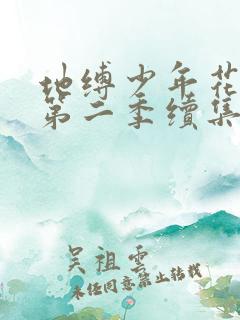 地缚少年花
第二季續集
吴祖雲
未经同意禁止转载